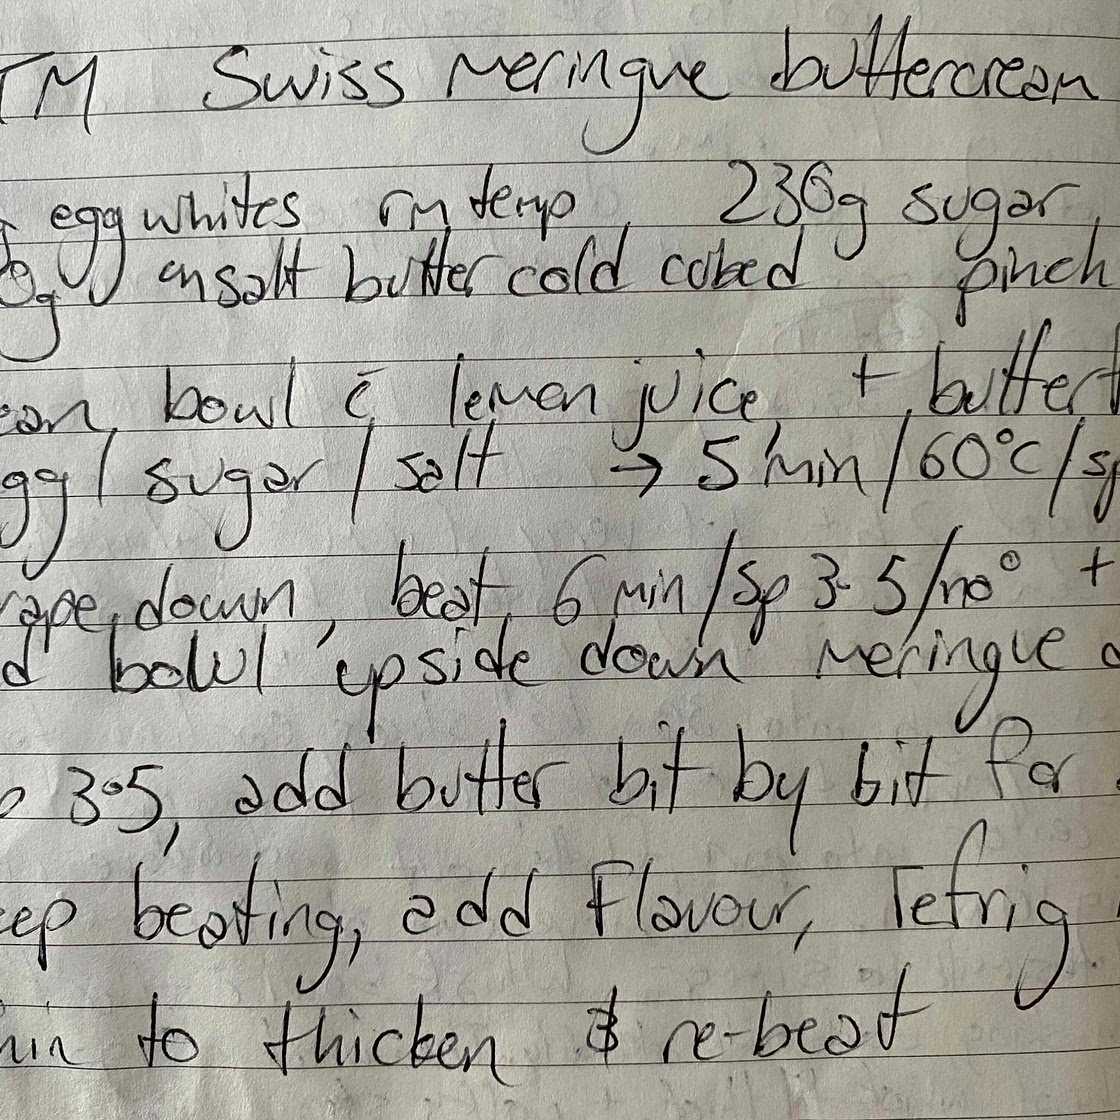 TM Swiss meringue buttercream
g egg whites rm temp 230g sugar,
0g unsalt butter cold cubed pinch
ean bowl c̄ lemon juice, + butterf
gg / sugar / salt → 5 min / 60°C / sp
rape down, beat 6 min / Sp 3.5 / no° +
d bowl upside down meringue
p 3.5, add butter bit by bit for
eep beating, add flavour, refrig
min to thicken & re-beat